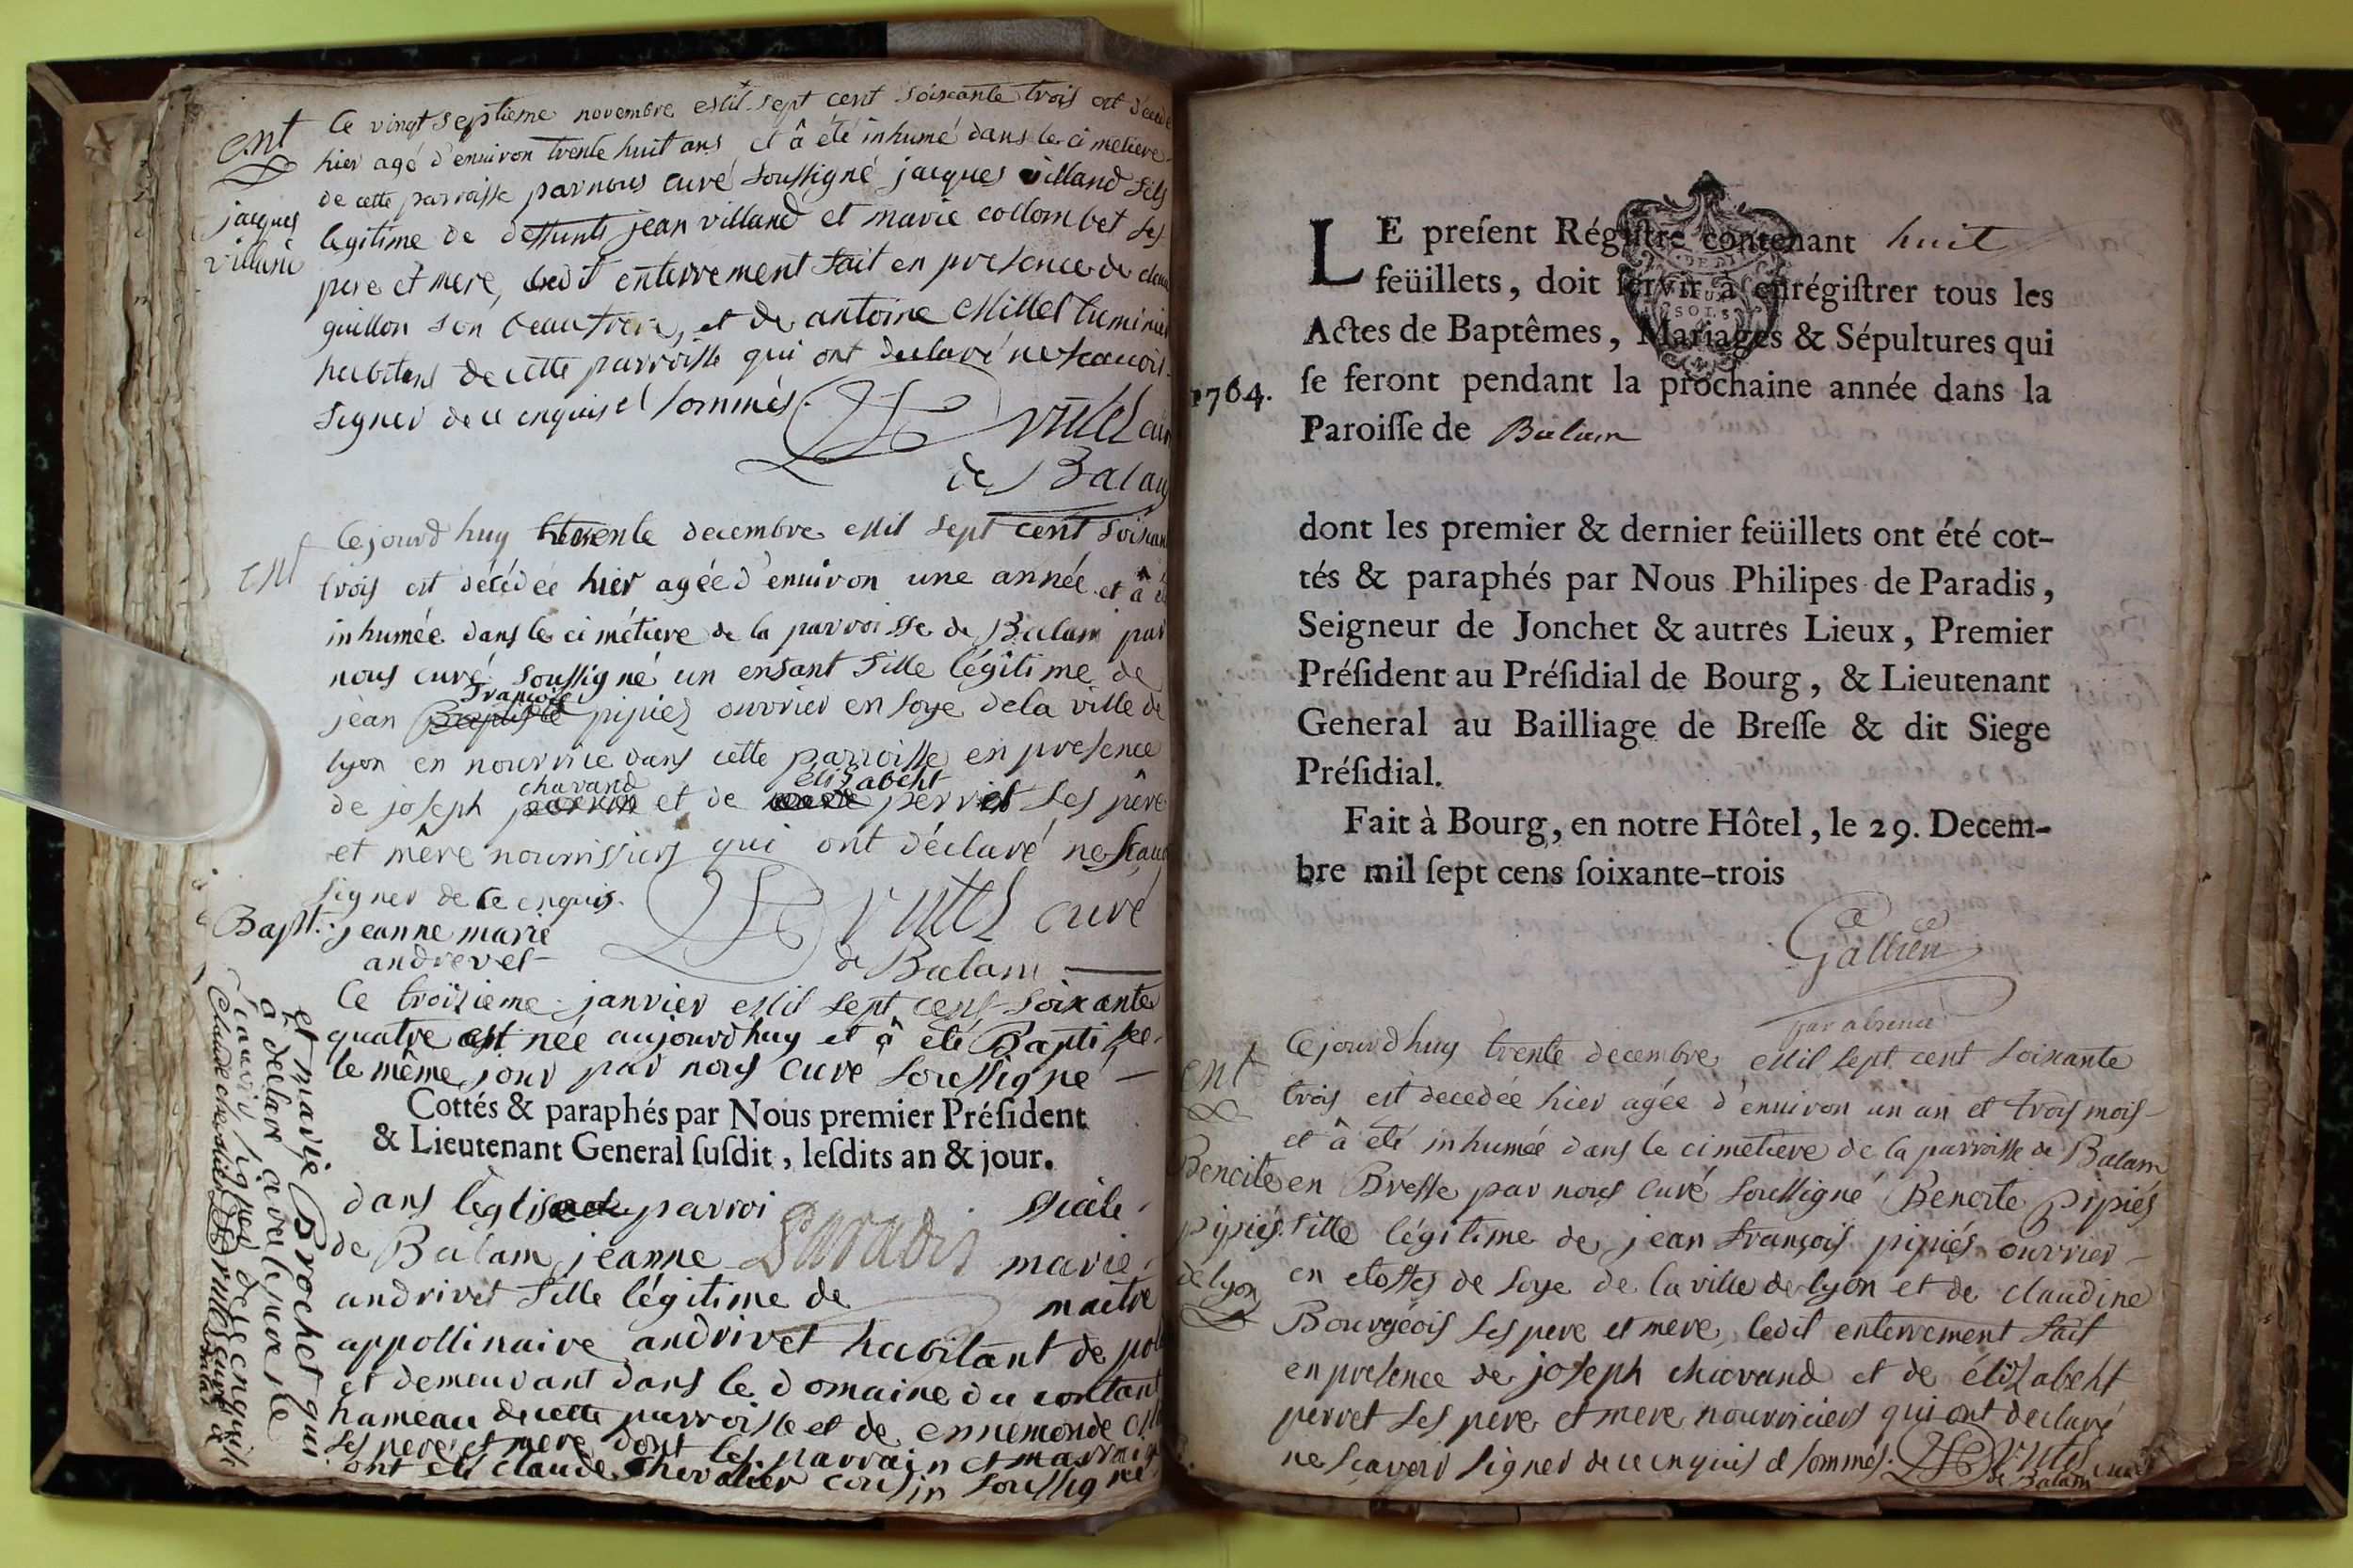 ent
jacques
villand
Ce vingt septieme novembre Mil sept cent soixante trois est décédé
hier agé d'environ trente huit ans et â été inhumé dans le cimetiere
de cette parroisse par nous curé soussigné jacques villand fils
legitime de deffunts jean villand et marie collombet ses
pere et mere, ledit enterrement fait en presence de
guillon son beaufrere, et de antoine Millet
habitans de cette parroisse qui ont declaré ne scavoir
signer de ce enquis et sommés.
de Balan
ent
Cejourd'huy trente decembre Mil sept cent soixante
trois est décédée hier agée d'environ une année et â
inhumée dans le cimétiere de la parroisse de Balam par
nous curé soussigné un enfant fille légitime de
françois
jean Baptiste pipiez ouvrier en soye de la ville de
lyon en nourrice dans cette parroisse en presence
chavand élizabeht
de joseph et de perret ses père
et mère nourrissiers qui ont déclaré ne
signer de ce enquis.
curé
de Balam
Bapt. jeanne marie
andrevet
Ce troisieme janvier Mil sept cent soixante
quatre est née aujourd'huy et â été Baptisée
le même jour par nous curé soussigné
Cottés & paraphés par Nous premier Préſident
& Lieutenant General ſuſdit, leſdits an & jour.
dans l'églisede parroi ssiale
de Balam jeanne Paradis marie
andrivet fille légitime de maitre
appollinaire andrivet habitant de
et demeurant dans le domaine du contant
hameau de cette parroisse et de ennemonde
ses pere et mere dont les parrain et marraine
ont été claude chevalier cousin soussigné
et marie Brochet qui
â déclaré avec le pere ne
scavoir signer de ce enquis
claude chevalier
LE preſent Régiſtre contenant huit
feüillets, doit ſervir à enrégiſtrer tous les
Actes de Baptêmes, Mariages & Sépultures qui
1764. ſe feront pendant la prochaine année dans la
Paroiſſe de Balam
dont les premier & dernier feüillets ont été cot-
tés & paraphés par Nous Philipes de Paradis,
Seigneur de Jonchet & autres Lieux, Premier
Préſident au Préſidial de Bourg, & Lieutenant
General au Bailliage de Breſſe & dit Siege
Préſidial.
Fait à Bourg, en notre Hôtel, le 29. Decem-
bre mil ſept cens ſoixante-trois
Gallien
par absence
ent
Benoite
pipiés
de lyon
Cejourd'huy trente decembre Mil sept cent soixante
trois est decedée hier agée d'environ un an et trois mois
et â été inhumée dans le cimetiere de la parroisse de Balam
en Bresse par nous curé soussigné Benoite pipiés
fille légitime de jean françois pipiés ouvrier
en etoffes de soye de la ville de lyon et de claudine
Bourgeois ses pere et mere, ledit enterrement fait
en presence de joseph chavand et de élizabeht
perret ses pere et mere nourriciers qui ont declaré
ne scavoir signer de ce enquis et sommés.
de Balam